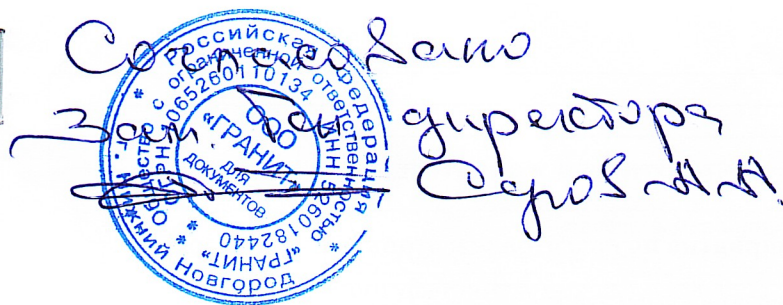 Согласовано
Зам. Ген директора
Суров А.А.
* Российская Федерация * г. Нижний Новгород
Общество с ограниченной ответственностью «ГРАНИТ» *
ОГРН 1065260110134 ИНН 5260182440 *
ООО
«ГРАНИТ»
ДЛЯ
ДОКУМЕНТОВ